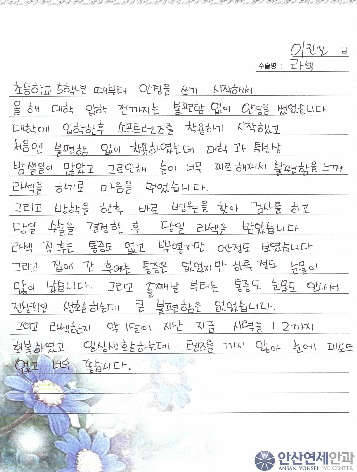 이진표 님
수술명 : 라섹
초등학교 5학년 때부터 안경을 쓰기 시작해서
올해 대학 입학 전까지는 불편함 없이 안경을 썼었습니다
대학에 입학한후 소프트렌즈를 착용하기 시작했고
처음엔 불편함 없이 착용하였는데 대학 과 특성상
밤샘일이 많았고 그로인해 눈이 너무 피로해져서 불편함을 느껴
라섹을 하기로 마음을 먹었습니다.
그리고 방학을 한후 바로 병원을 찾아 검사를 하고
당일 수술을 결정한 후 당일 라섹은 받았습니다
라섹 직후는 통증도 없고 뿌옇지만 어느정도 보였습니다
그리고 집에 간 후에는 통증은 없었지만 하루 정도 눈물이
많이 났습니다. 그리고 둘째날 부터는 통증도 눈물도 안나서
전반적인 생활하는데 큰 불편함은 없었습니다.
그리고 라섹한지 약 1달이 지난 지금 시력은 1.2까지
회복하였고 일상생활하는데 렌즈를 끼지 않아 눈에 피로도
없고 너무 좋습니다.
안산연세안과
ANSAN YONSEI EYE CENTER